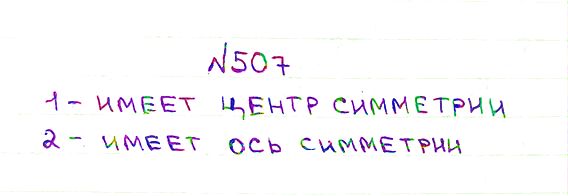 №507
1 - ИМЕЕТ ЦЕНТР СИММЕТРИИ
2 - ИМЕЕТ ОСЬ СИММЕТРИИ